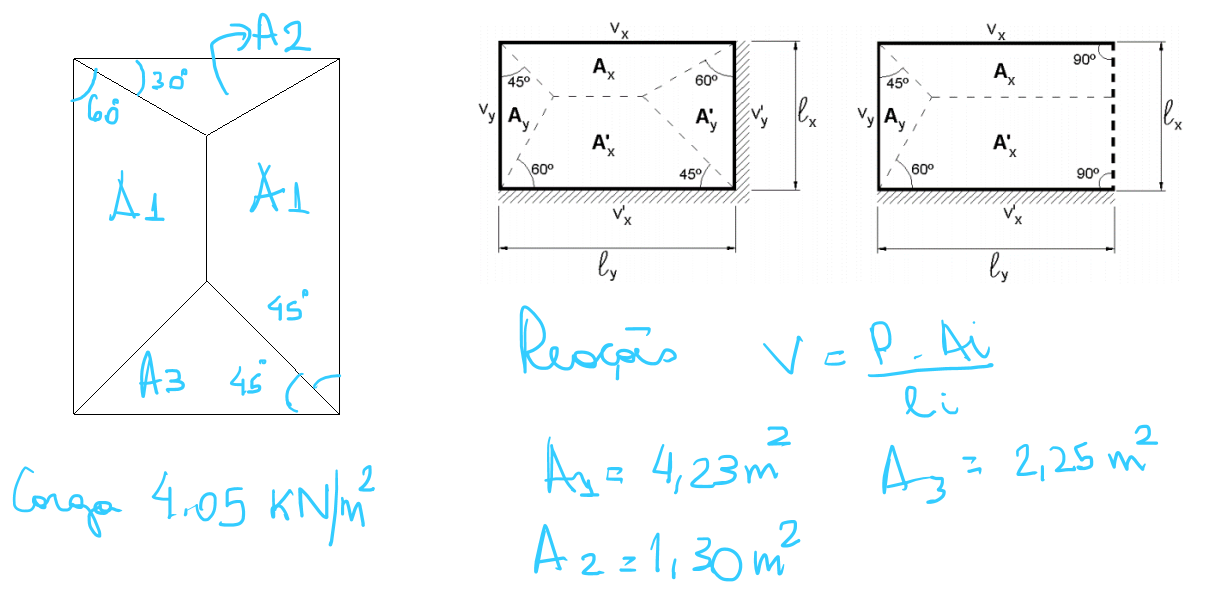 A2
30°
60°
A1
A1
45°
A3
45°
Carga 4.05 KN/m²
Vx
45º
Ax
60º
Vy
Ay
A'y
V'y
ℓx
A'x
60º
45º
V'x
ℓy
Vx
90º
45º
Ax
Vy
Ay
A'x
ℓx
60º
90º
V'x
ℓy
Reação V = P . Ai / li
A1 = 4,23 m² A3 = 2,25 m²
A2 = 1,30 m²